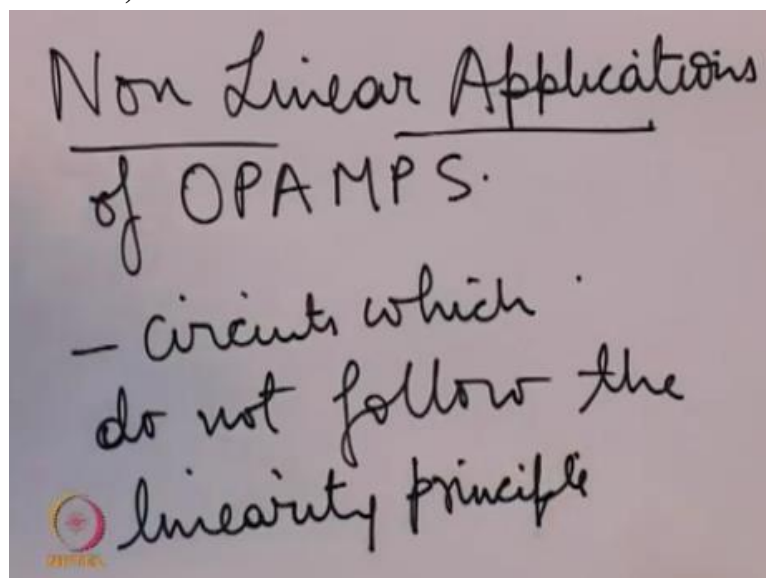 Non Linear Applications
of OPAMPS.
- circuits which
do not follow the
linearity principle